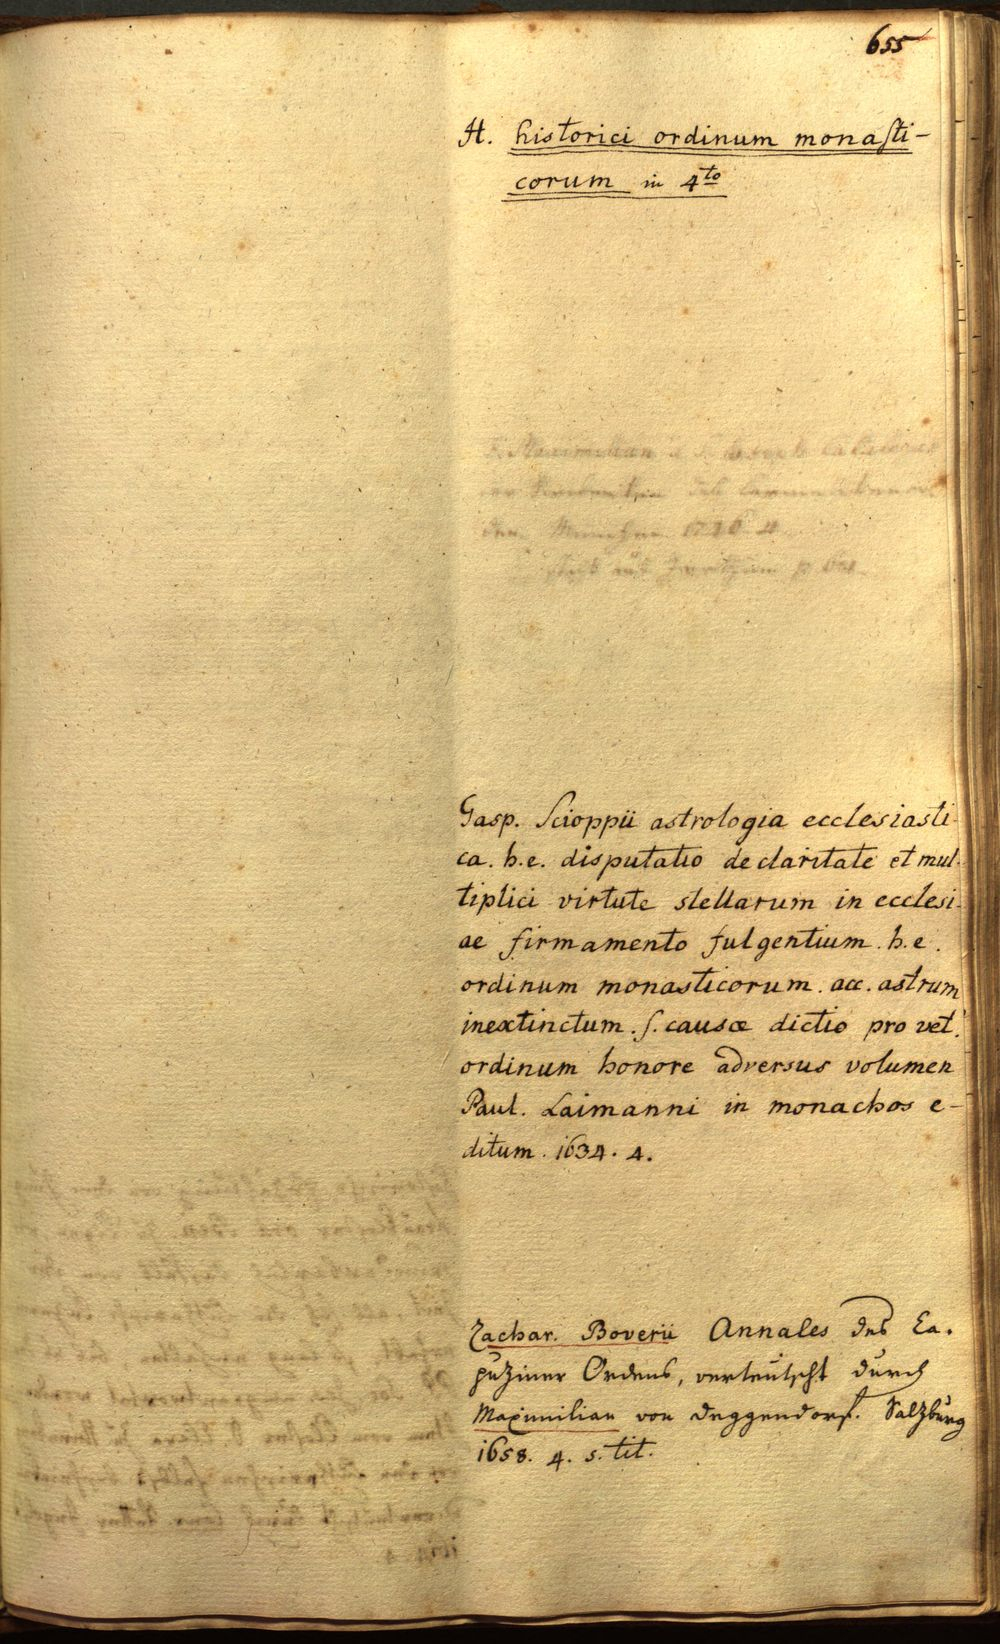 655
H. historici ordinum monaſti-
corum in 4to
Gasp. Scioppii astrologia ecclesiasti-
ca. h.e. disputatio de claritate et mul-
tiplici virtute stellarum in ecclesi-
ae firmamento fulgentium. h.e.
ordinum monasticorum. acc. astrum
inextinctum. ſ. causæ dictio pro vet.
ordinum honore adversus volumen
Paul. Laimanni in monachos e-
ditum. 1634. 4.
Zachar. Boverii Annales des Ca-
puziner Ordens, verteutscht durch
Maximilian von Deggendorf. Salzburg
1658. 4. s. tit.